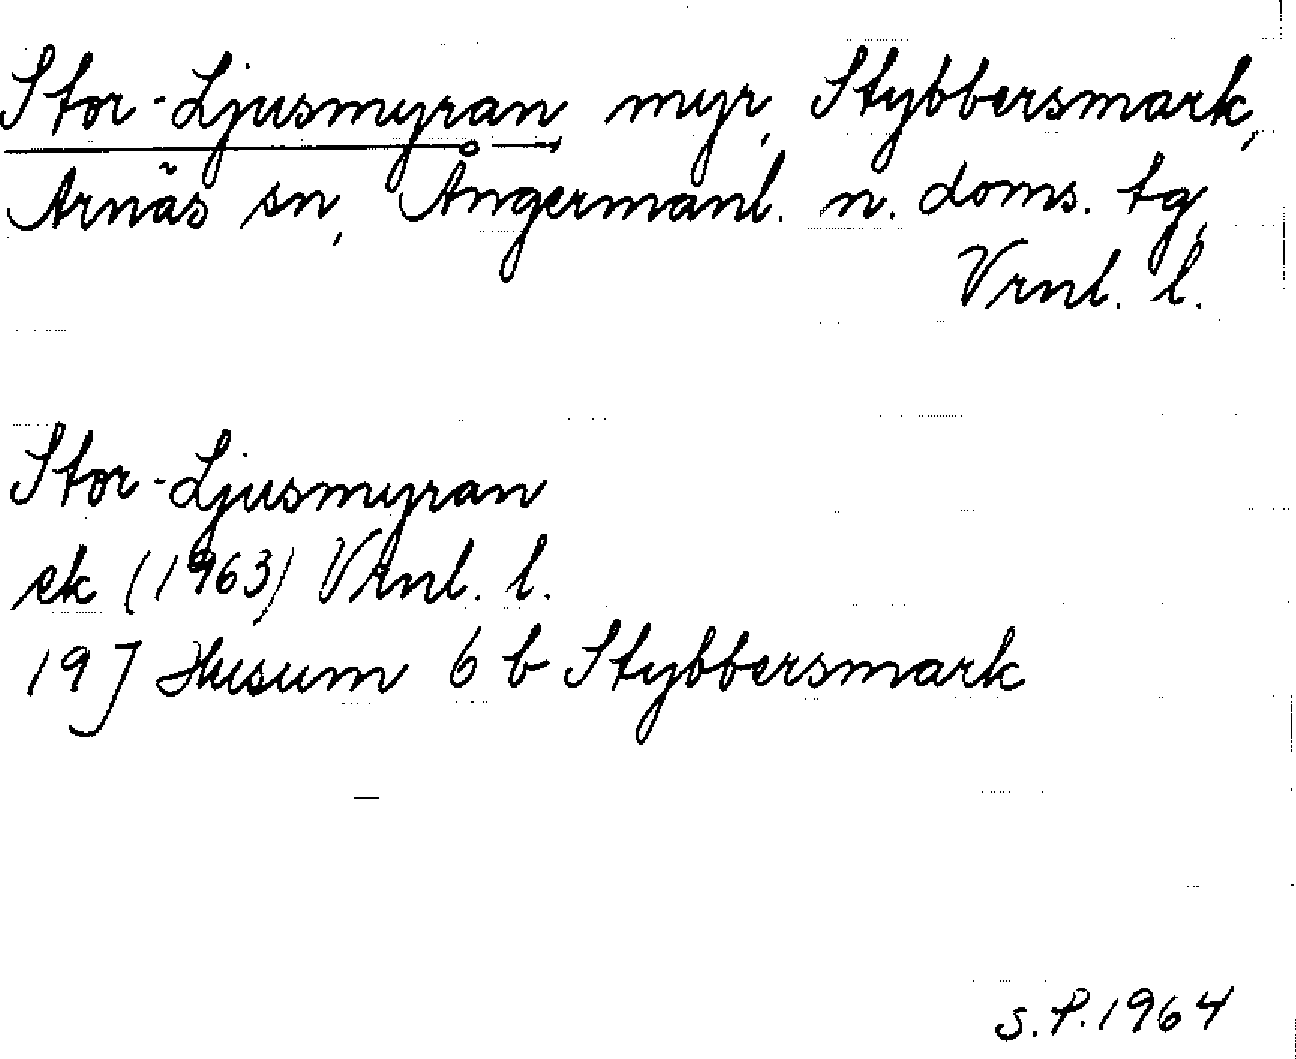 Stor-Ljusmyran, myr, Stybbersmark,
Arnäs sn, Ångermanl. n. doms. tg,
Vrnl. l.
Stor-Ljusmyran
ek (1963) Vrnl. l.
19J Husum 6 b Stybbersmark
S.P. 1964